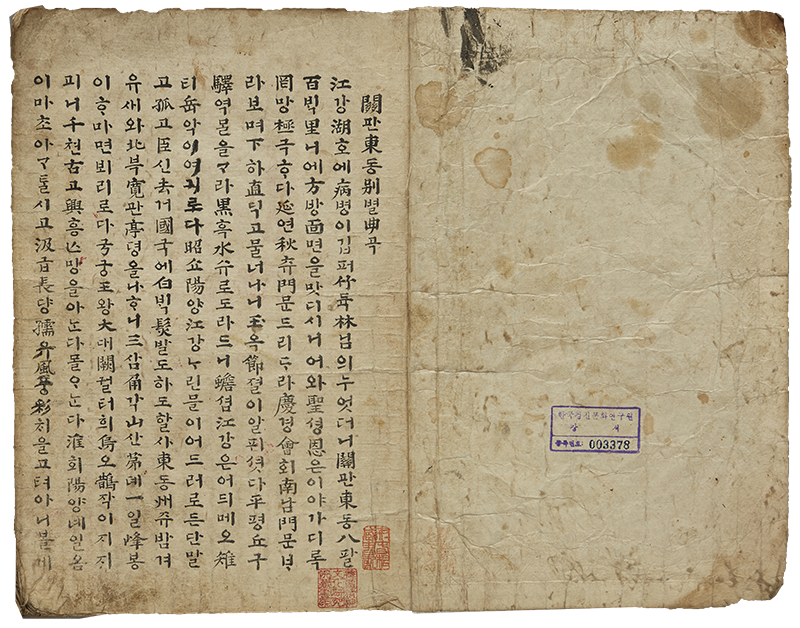 關관東동別별曲곡
江강湖호에病병이깁퍼竹듁林님의누엇더니關관東동八팔
百ᄇᆡᆨ里니에方방面면을맛디시니어와聖셩恩은이야가디록
罔망極극ᄒᆞ다延연秋츄門문드리ᄃᆞ라慶경會회南남門문ᄇᆞ
라보며下하直직고물너나니玉옥節졀이알ᄑᆡ셧다平평丘구
驛역ᄆᆞᆯ을ᄀᆞ라黑흑水슈로도라드니蟾셤江강은어듸메오雉
티岳악이여긔로다昭쇼陽양江강ᄂᆞ린믈이어드러로든단말
고孤고臣신去거國국에白ᄇᆡᆨ髮발도하도할샤東동州쥬밤겨
유새와北북寬관亭뎡올나ᄒᆞ니三삼角각山산第뎨一일峰봉
이ᄒᆞ마면뵈리로다궁궁王왕大대闕궐터희烏오鵲작이지지
괴니千쳔古고興흥亡망을아ᄂᆞᆫ다몰ᄋᆞᄂᆞᆫ다淮회陽양녜일홈
이마초아ᄀᆞᄐᆞᆯ시고汲급長댱孺유風풍彩치을고텨아니볼게
한국정신문화연구원
장 서
등록번호: 003378